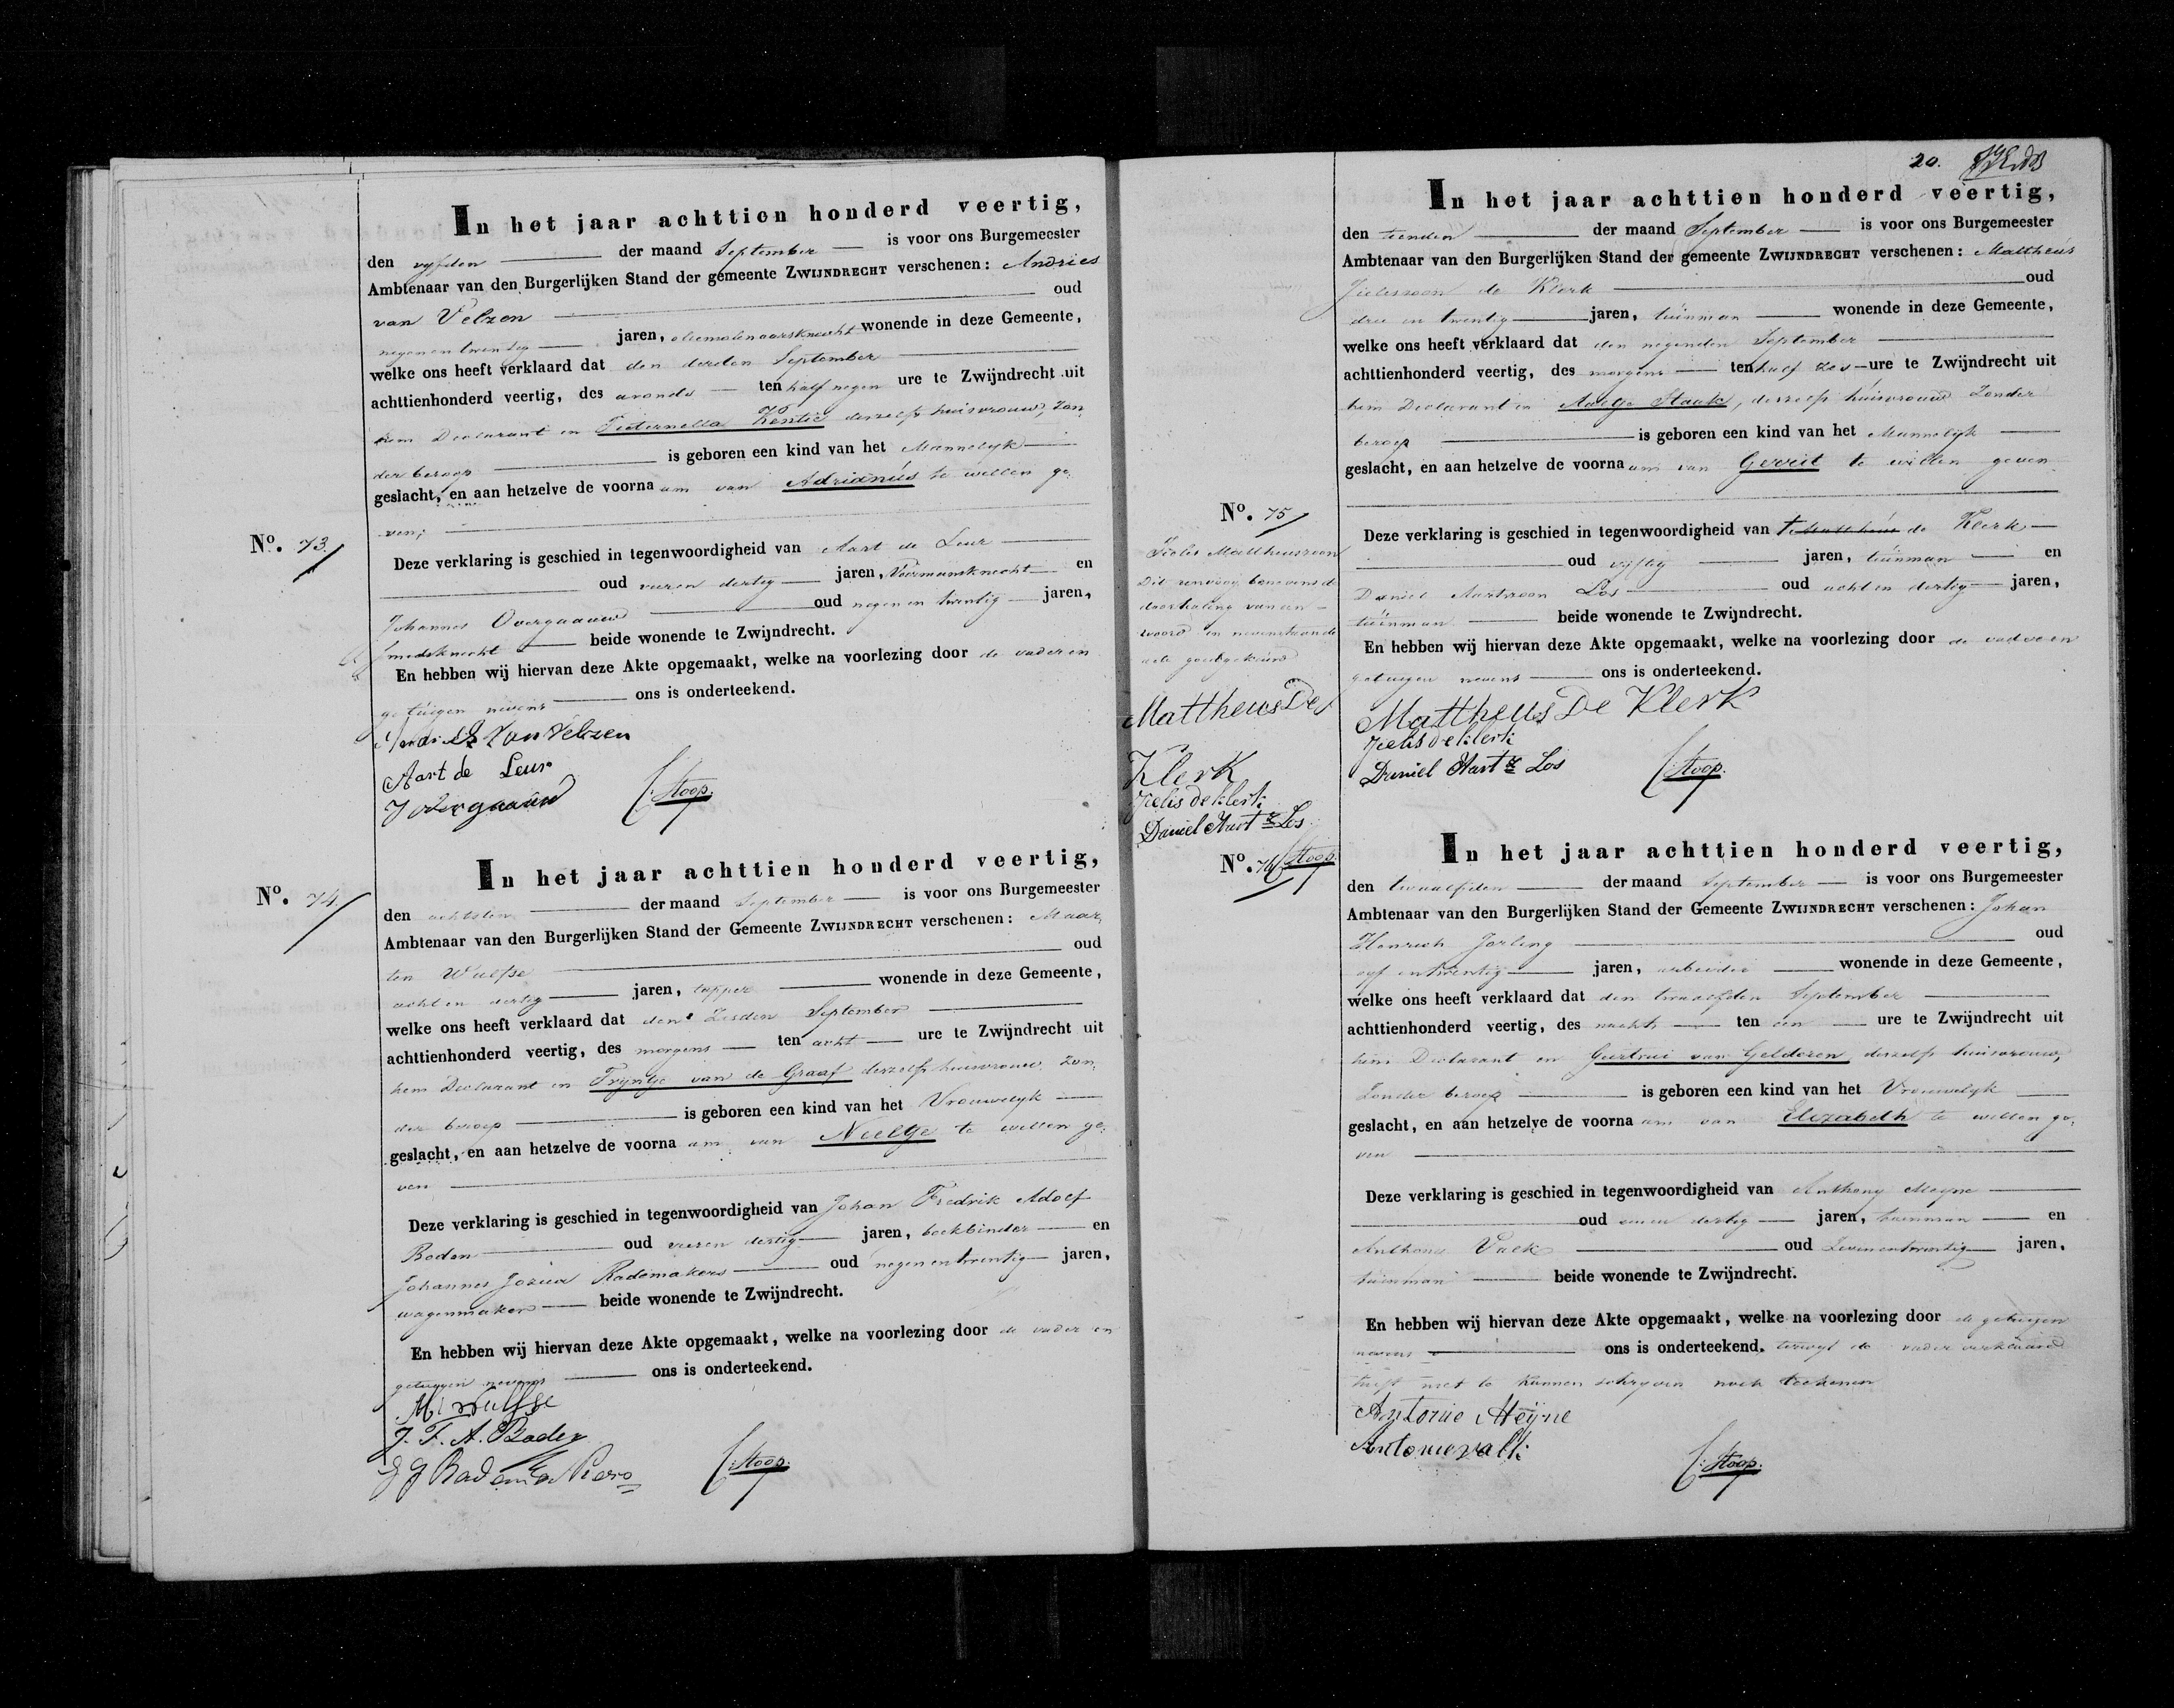 In het jaar achttien honderd veertig,
den vyfden der maand September is voor ons Burgemeester
Ambtenaar van den Burgerlijken Stand der gemeente ZWIJNDRECHT verschenen: Andries
van Velzen oud
negen en twintig jaren, oliemolenaarsknecht wonende in deze Gemeente,
welke ons heeft verklaard dat den derden September
achttienhonderd veertig, des avonds ten half negen ure te Zwijndrecht uit
hem Declarant en Pieternella Kentie deszelfs huisvrouw, zon
der beroep is geboren een kind van het Mannelyk
geslacht, en aan hetzelve de voorna am van Adrianus te willen ge
ven;
No. 73
Deze verklaring is geschied in tegenwoordigheid van Aart de Leur
oud vier en dertig jaren, Voermansknecht en
Johannes Overgaauw oud negen en twintig jaren,
smedsknecht beide wonende te Zwijndrecht.
En hebben wij hiervan deze Akte opgemaakt, welke na voorlezing door de vader en
getuigen nevens ons is onderteekend.
Andries van Velzen
Aart de Leur
J overgaauw
Stoop.
In het jaar achttien honderd veertig,
No. 74
den achtsten der maand September is voor ons Burgemeester
Ambtenaar van den Burgerlijken Stand der Gemeente ZWIJNDRECHT verschenen: Maar
ten Wulfse oud
acht en dertig jaren, tapper wonende in deze Gemeente,
welke ons heeft verklaard dat den Zesden September
achttienhonderd veertig, des morgens ten acht ure te Zwijndrecht uit
hem Declarant en Tryntje van de Graaf deszelfs huisvrouw zon
der beroep is geboren een kind van het Vrouwelyk
geslacht, en aan hetzelve de voorna am van Neeltje te willen ge
ven
Deze verklaring is geschied in tegenwoordigheid van Johan Fredrik Adolf
Boden oud vier en dertig jaren, boekbinder en
Johannes Josua Rademakers oud negen en twintig jaren,
wagenmaker beide wonende te Zwijndrecht.
En hebben wij hiervan deze Akte opgemaakt, welke na voorlezing door de vader en
getuigen nevens ons is onderteekend.
M wulfse
J. F. A. Boden
J J Rademakers
Stoop.
20.
In het jaar achttien honderd veertig,
den tienden der maand September is voor ons Burgemeester
Ambtenaar van den Burgerlijken Stand der gemeente ZWIJNDRECHT verschenen: Mattheus
Jieleszoon de Klerk oud
drie en twintig jaren, tuinman wonende in deze Gemeente,
welke ons heeft verklaard dat den negenden September
achttienhonderd veertig, des morgens ten half zes ure te Zwijndrecht uit
hem Declarant en Aaltje Staak, deszelfs huisvrouw Zonder
beroep is geboren een kind van het Mannelijk
geslacht, en aan hetzelve de voorna am van Gerrit te willen geven
No. 75
Deze verklaring is geschied in tegenwoordigheid van Mattheus de Klerk
oud vyftig jaren, tuinman en
Daniel Aartszoon Los oud acht en dertig jaren,
tuinman beide wonende te Zwijndrecht.
En hebben wij hiervan deze Akte opgemaakt, welke na voorlezing door de vader en
getuigen nevens ons is onderteekend.
Mattheus De Klerk
Jielis de klerk
Daniel Aart z Los
Stoop.
Jielis Mattheuszoon
Dit renvooy benevens de
doorhaling van een
woord in nevenstaande
acte goedgekeurd
Mattheus De
Klerk
Jielis de klerk
Daniel Aart z Los
Stoop.
No. 76
In het jaar achttien honderd veertig,
den twaalfden der maand September is voor ons Burgemeester
Ambtenaar van den Burgerlijken Stand der Gemeente ZWIJNDRECHT verschenen: Johan
Henrich Jorling oud
vyf en twintig jaren, arbeider wonende in deze Gemeente,
welke ons heeft verklaard dat den twaalfden September
achttienhonderd veertig, des nachts ten een ure te Zwijndrecht uit
hem Declarant en Geertrui van Gelderen deszelfs huisvrouw,
Zonder beroep is geboren een kind van het Vrouwelyk
geslacht, en aan hetzelve de voorna am van Elizabeth te willen ge
ven
Deze verklaring is geschied in tegenwoordigheid van Anthony Meyne
oud een en dertig jaren, tuinman en
Anthony Valk oud Zeven en twintig jaren,
tuinman beide wonende te Zwijndrecht.
En hebben wij hiervan deze Akte opgemaakt, welke na voorlezing door de getuigen
nevens ons is onderteekend. terwyl de vader verklaard
heeft niet te kunnen schryven noch teekenen
Antonie Meyne
Antonie valk
Stoop.